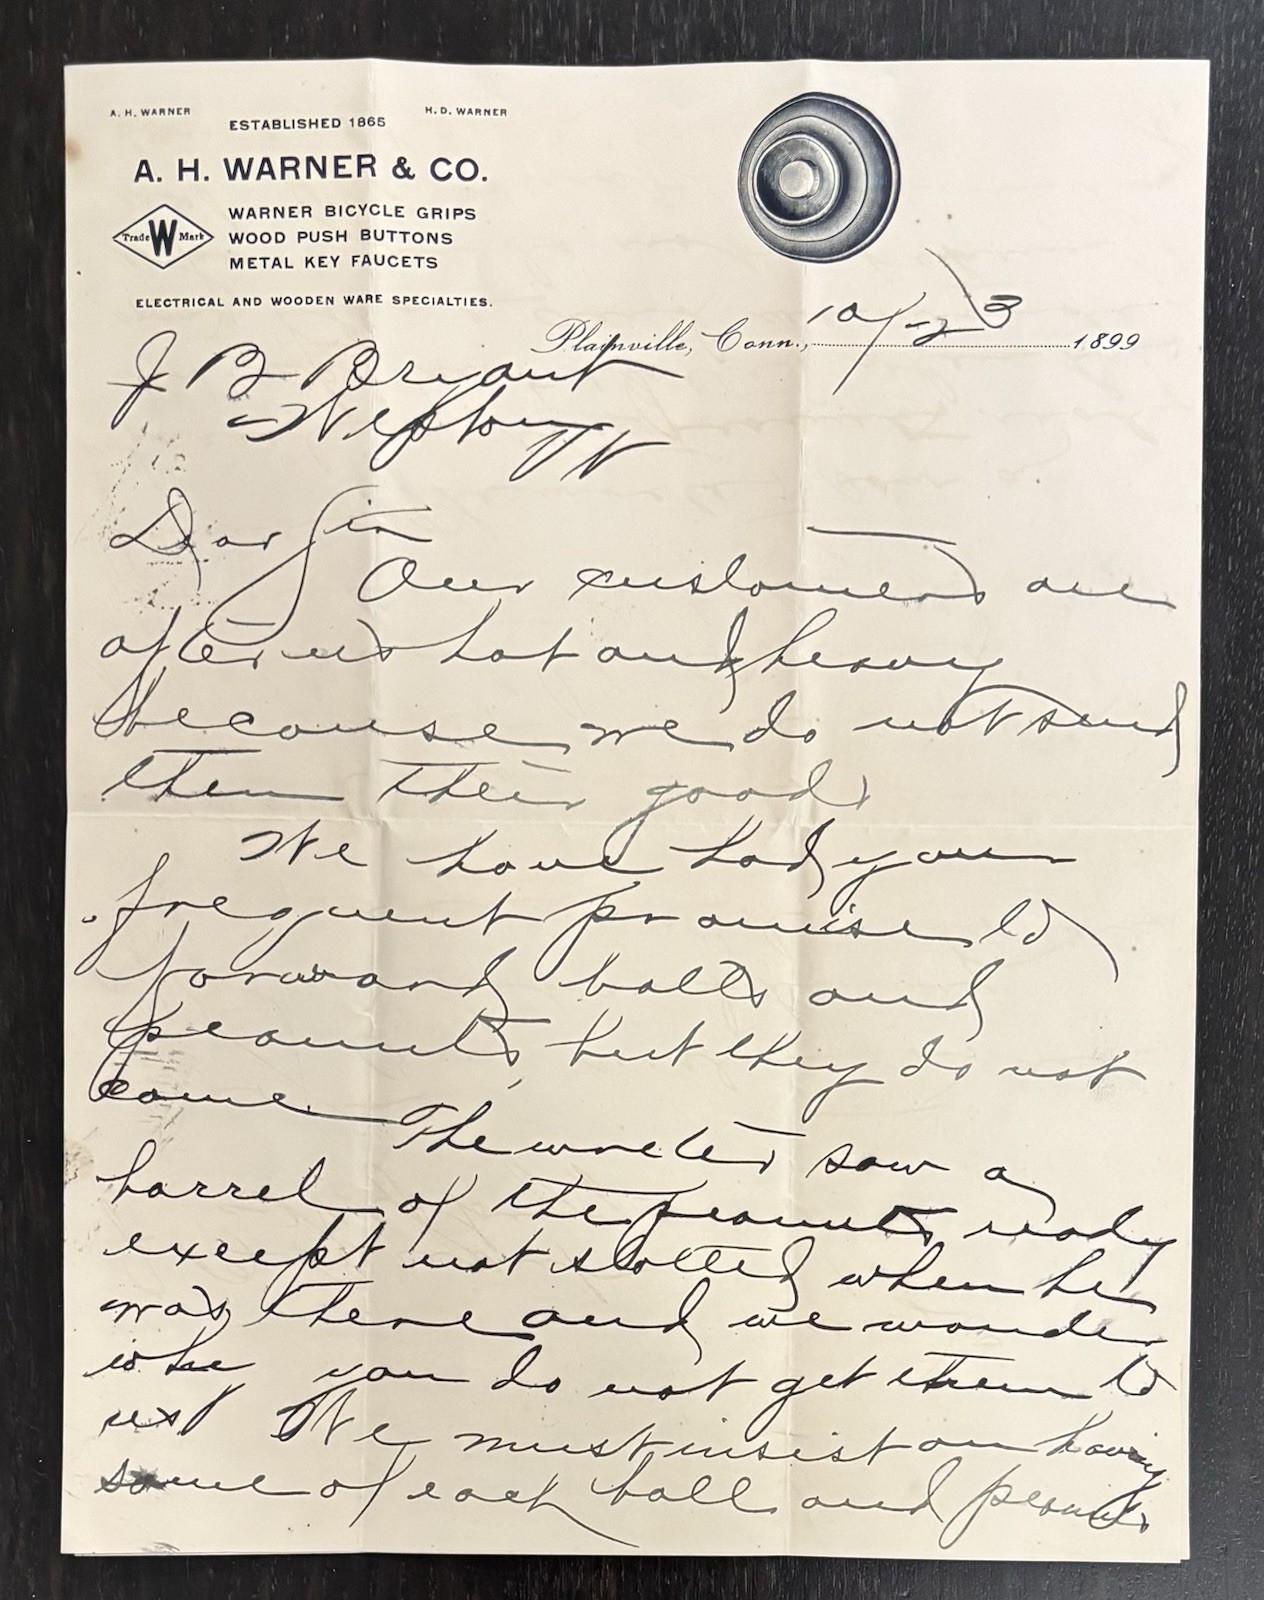 A. H. WARNER
H. D. WARNER
ESTABLISHED 1865
A. H. WARNER & CO.
Trade W Mark
WARNER BICYCLE GRIPS
WOOD PUSH BUTTONS
METAL KEY FAUCETS
ELECTRICAL AND WOODEN WARE SPECIALTIES.
Plainville, Conn., 10/-23 1899
J B Bryant
Dear Sir
Our customers are
after us hot and heavy
because we do not send
them their goods
We have had your
frequent promises to
forward balls and
peanuts, but they do not
come The writer saw a
barrel of the peanuts ready
except not slotted when he
was there and we wonder
why you do not get them to
us! We must insist on having
some of each ball and peanuts